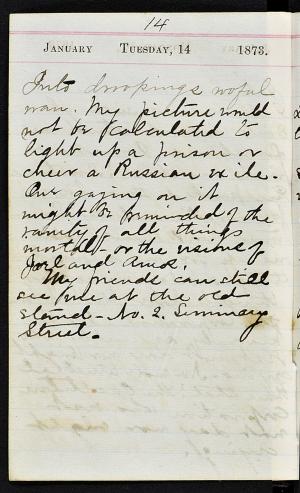 14
JANUARY TUESDAY, 14 1873.
Into droopings woful
wan. My picture would
not be calculated to
light up a prison or
cheer a Russian exile.
One gazing on it
might be reminded of the
vanity of all things
mortal - or the visions of
Joel and Amos.
My friends can still
see me at the old
stand - No. 2. Seminary
Street.